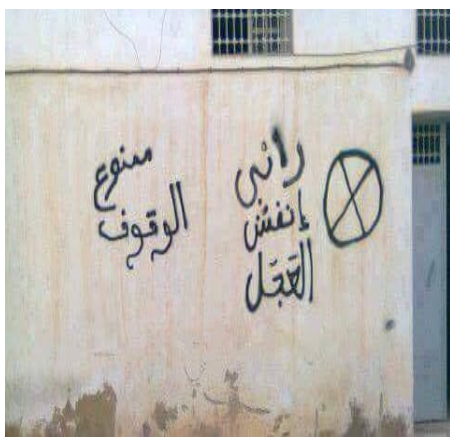 راني
إنفش
العجل
ممنوع
الوقوف